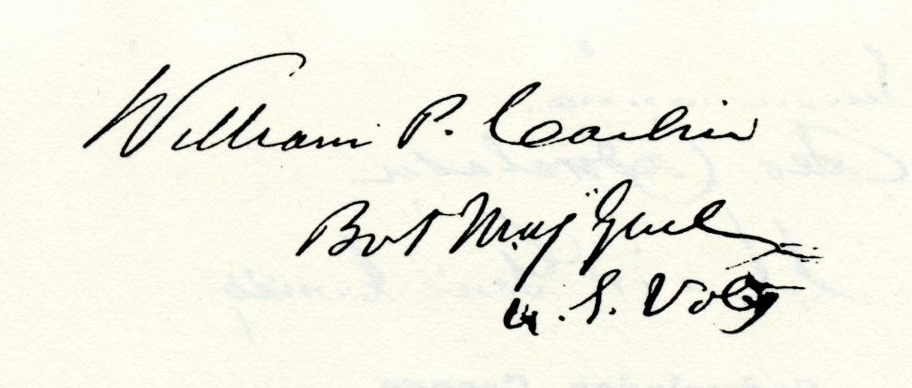 William P. Carlin
Bvt Maj Genl
U. S. Vols